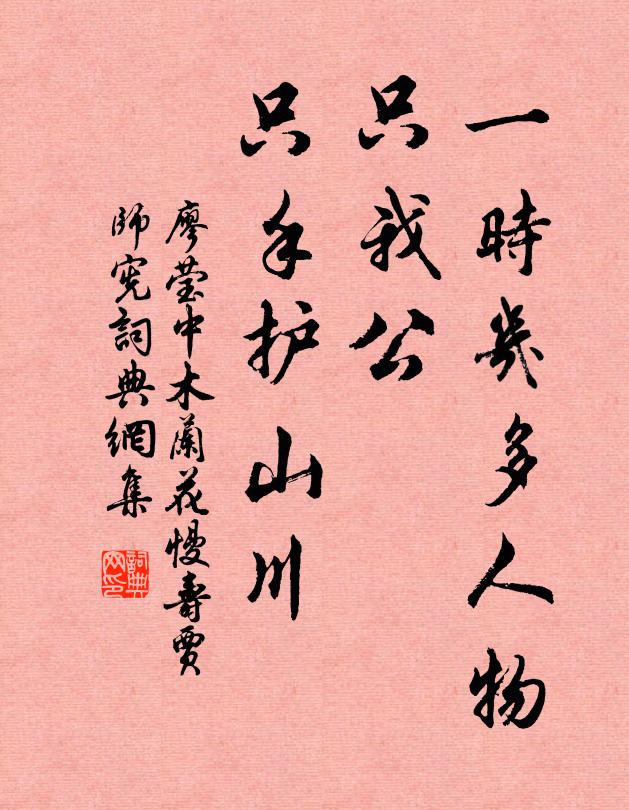 一時幾多人物
只我公
只手护山川
廖莹中木蘭花慢壽賈
師宪詞典網集
詞典
网印